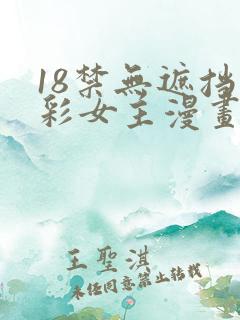 18禁無遮挡
彩女主漫畫
王聖淇
未经同意禁止转载